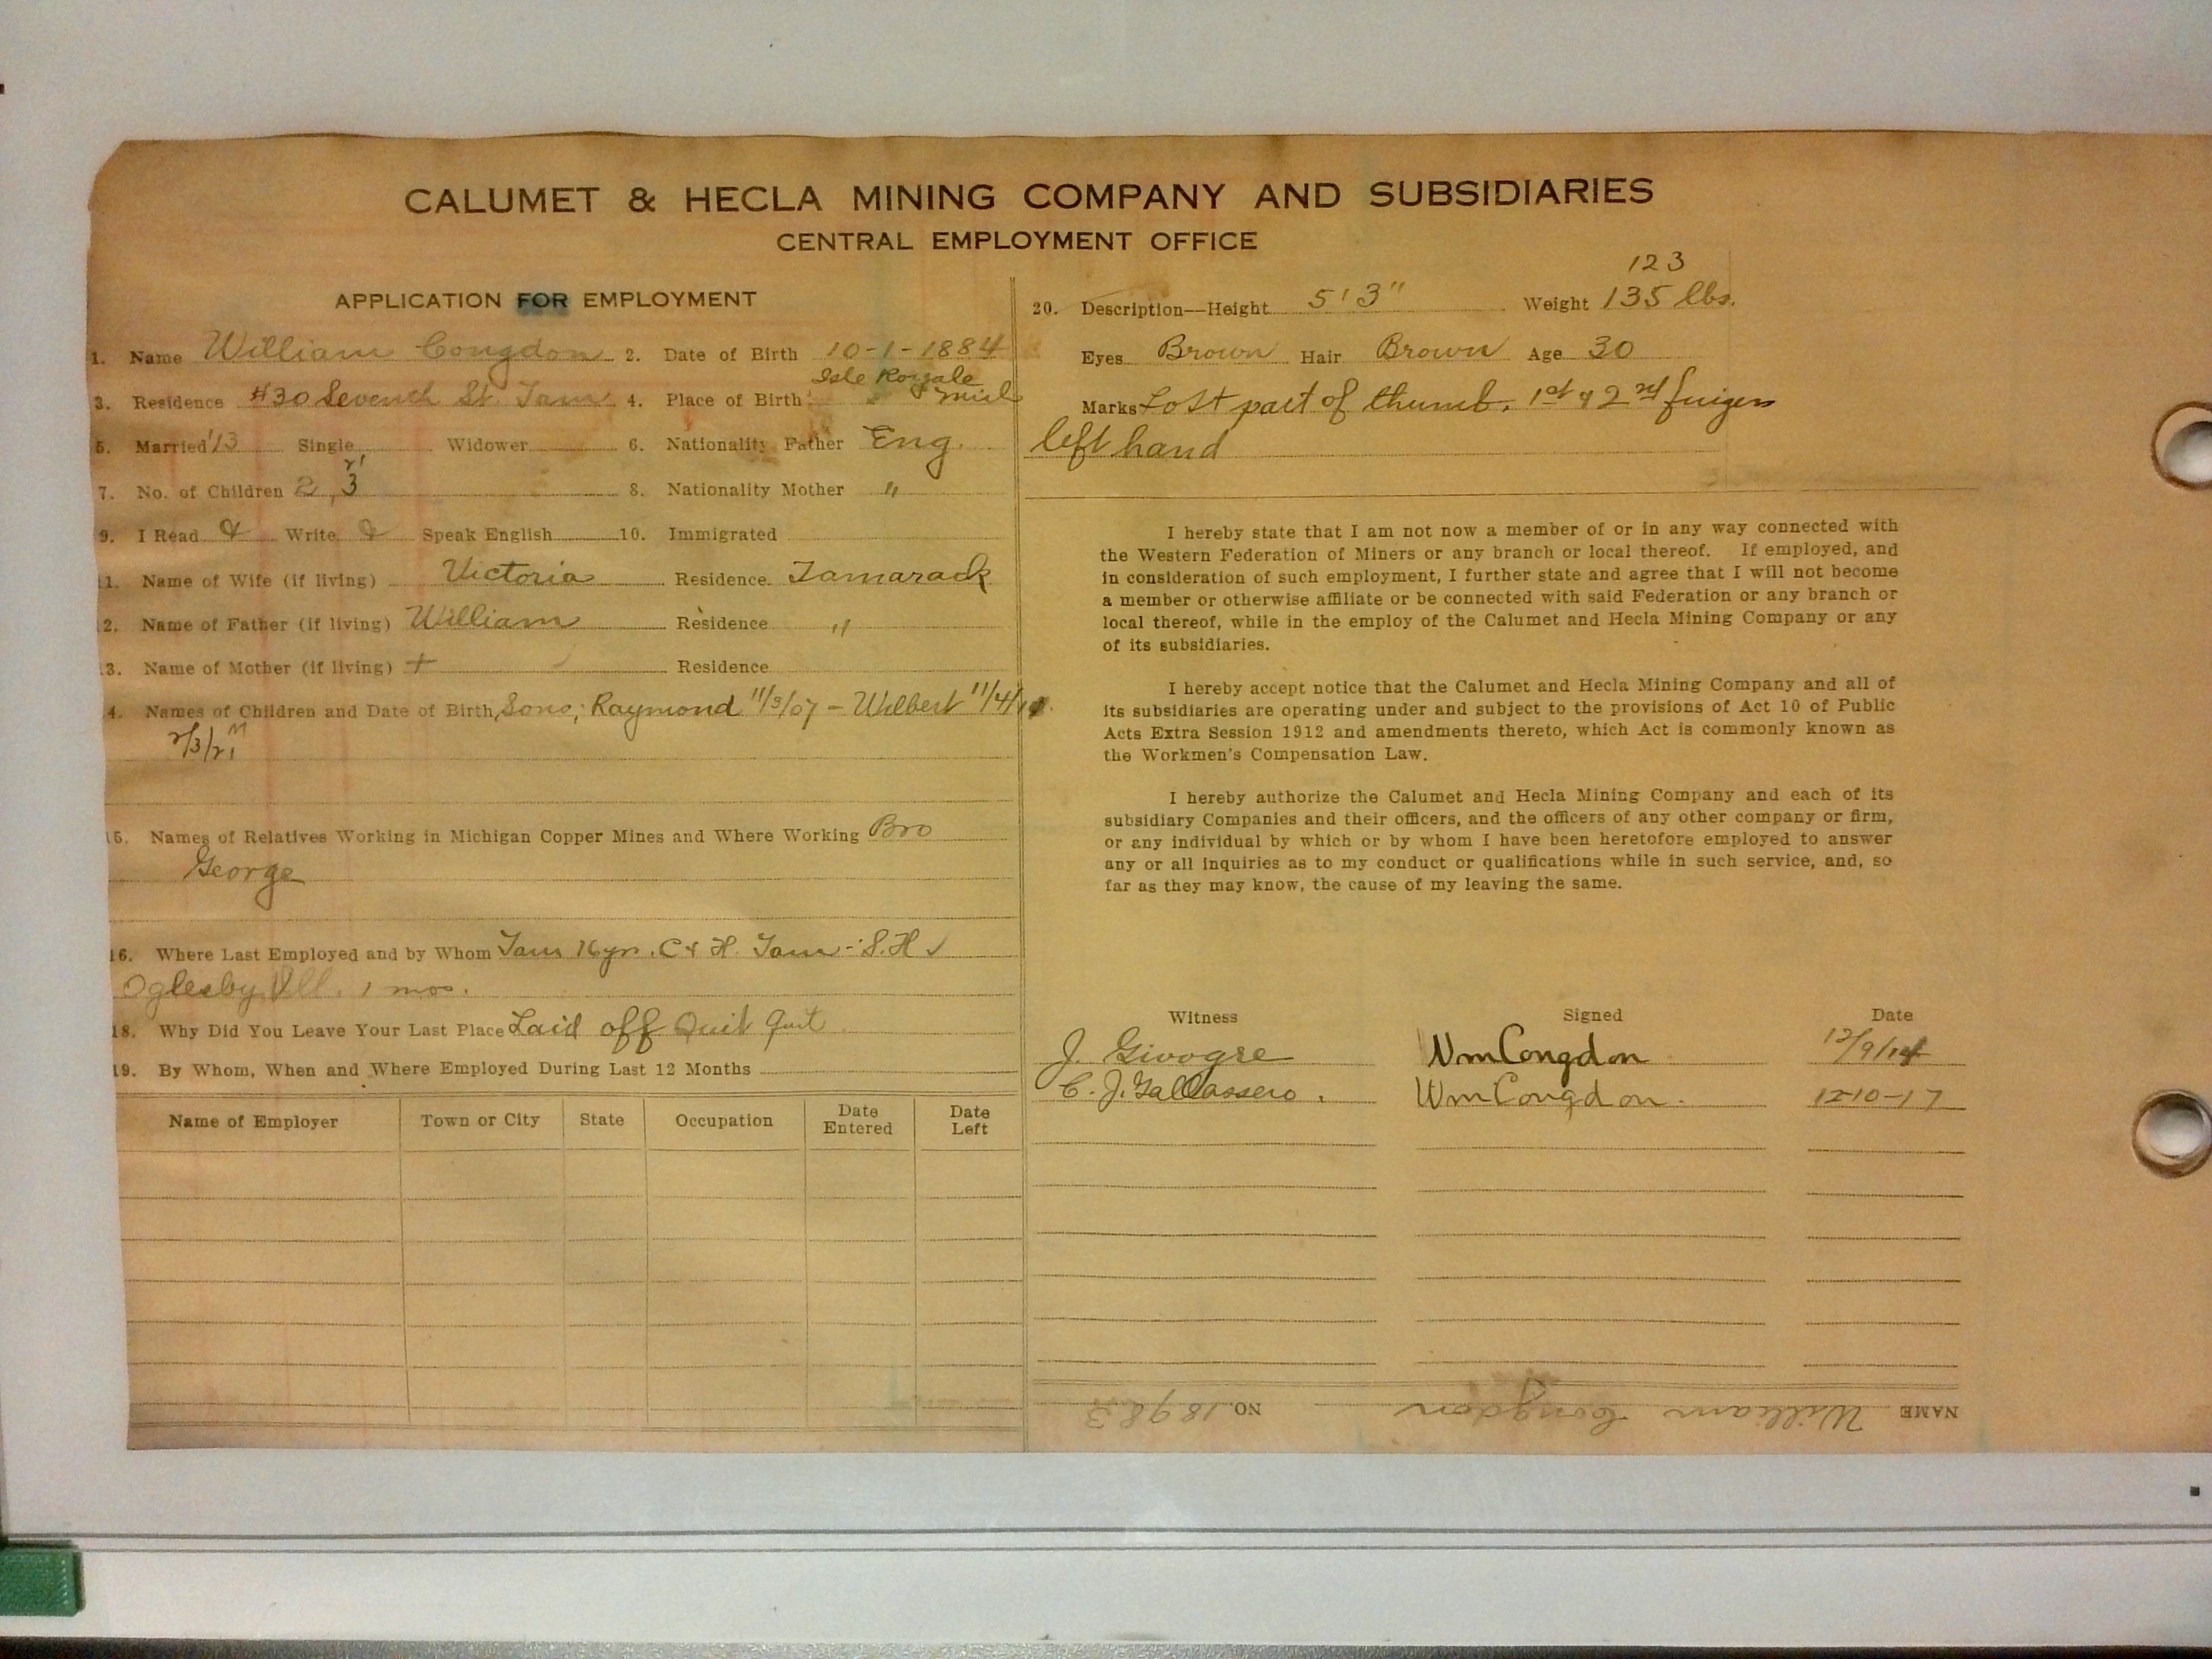 CALUMET & HECLA MINING COMPANY AND SUBSIDIARIES
CENTRAL EMPLOYMENT OFFICE
APPLICATION FOR EMPLOYMENT
1. Name William Congdon 2. Date of Birth 10-1-1884
3. Residence #30 Seventh St. Tam 4. Place of Birth Isle Royale Mich
5. Married '13 Single Widower 6. Nationality Father Eng.
7. No. of Children 2, 3 8. Nationality Mother "
9. I Read & Write & Speak English 10. Immigrated
11. Name of Wife (if living) Victoria Residence Tamarack
12. Name of Father (if living) William Residence "
13. Name of Mother (if living) + Residence
14. Names of Children and Date of Birth Sons; Raymond 11/3/07 - Wilbert 11/4/
15. Names of Relatives Working in Michigan Copper Mines and Where Working Bro
George
16. Where Last Employed and by Whom Tam 16 yrs. C & H. Tam - S.H
Oglesby Ill. 1 mos.
18. Why Did You Leave Your Last Place Laid off Quit Quit
19. By Whom, When and Where Employed During Last 12 Months
Name of Employer Town or City State Occupation Date Entered Date Left
123
20. Description—Height 5'3" Weight 135 lbs.
Eyes Brown Hair Brown Age 30
Marks Lost part of thumb, 1st & 2nd fingers
left hand
I hereby state that I am not now a member of or in any way connected with
the Western Federation of Miners or any branch or local thereof. If employed, and
in consideration of such employment, I further state and agree that I will not become
a member or otherwise affiliate or be connected with said Federation or any branch or
local thereof, while in the employ of the Calumet and Hecla Mining Company or any
of its subsidiaries.
I hereby accept notice that the Calumet and Hecla Mining Company and all of
its subsidiaries are operating under and subject to the provisions of Act 10 of Public
Acts Extra Session 1912 and amendments thereto, which Act is commonly known as
the Workmen's Compensation Law.
I hereby authorize the Calumet and Hecla Mining Company and each of its
subsidiary Companies and their officers, and the officers of any other company or firm,
or any individual by which or by whom I have been heretofore employed to answer
any or all inquiries as to my conduct or qualifications while in such service, and, so
far as they may know, the cause of my leaving the same.
Witness Signed Date
J. Givogre Wm Congdon 12/9/14
C. J. Wm Congdon. 12-10-17
NAME William Congdon NO. 18983